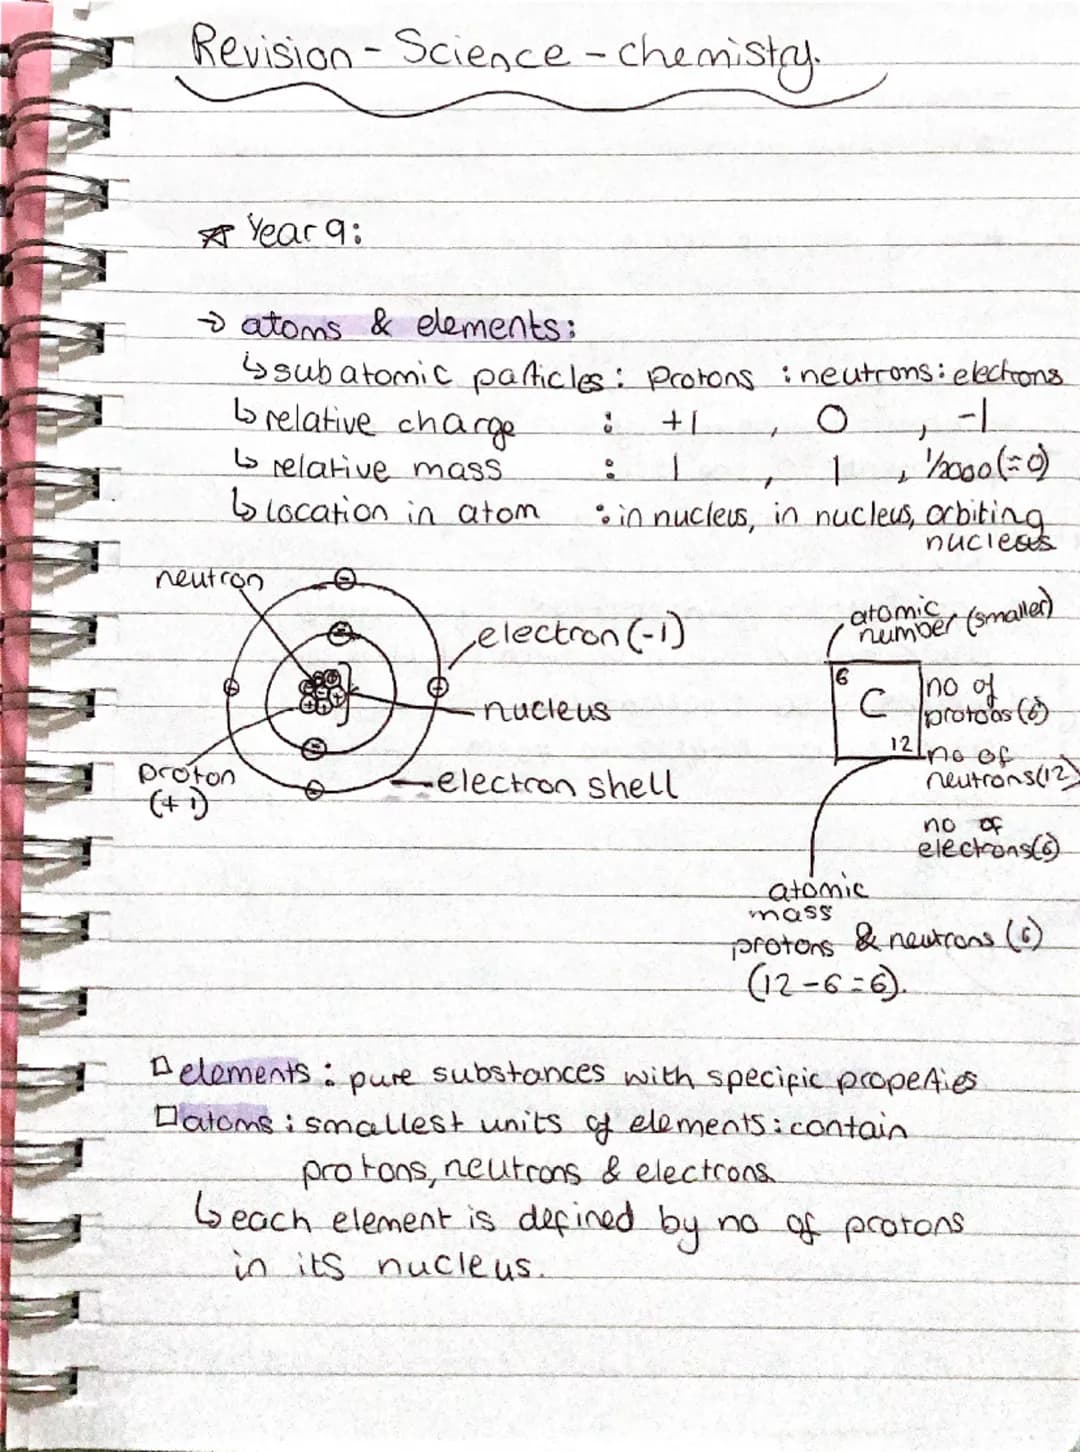 Revision - Science - chemistry.
☆ Year 9:
→ atoms & elements:
↳ subatomic particles : protons : neutrons : electrons
↳ relative charge : +1 , 0 , -1
↳ relative mass : 1 , 1 , 1/2000 (≈0)
↳ location in atom : in nucleus, in nucleus, orbiting
nucleus
neutron
electron (-1)
nucleus
proton
(+1)
electron shell
atomic
number (smaller)
6
C
12
no of
protons (6)
no of
neutrons (12)
no of
electrons (6)
atomic
mass
protons & neutrons (6)
(12-6=6).
□ elements : pure substances with specific properties
□ atoms : smallest units of elements : contain
protons, neutrons & electrons
↳ each element is defined by no of protons
in its nucleus.